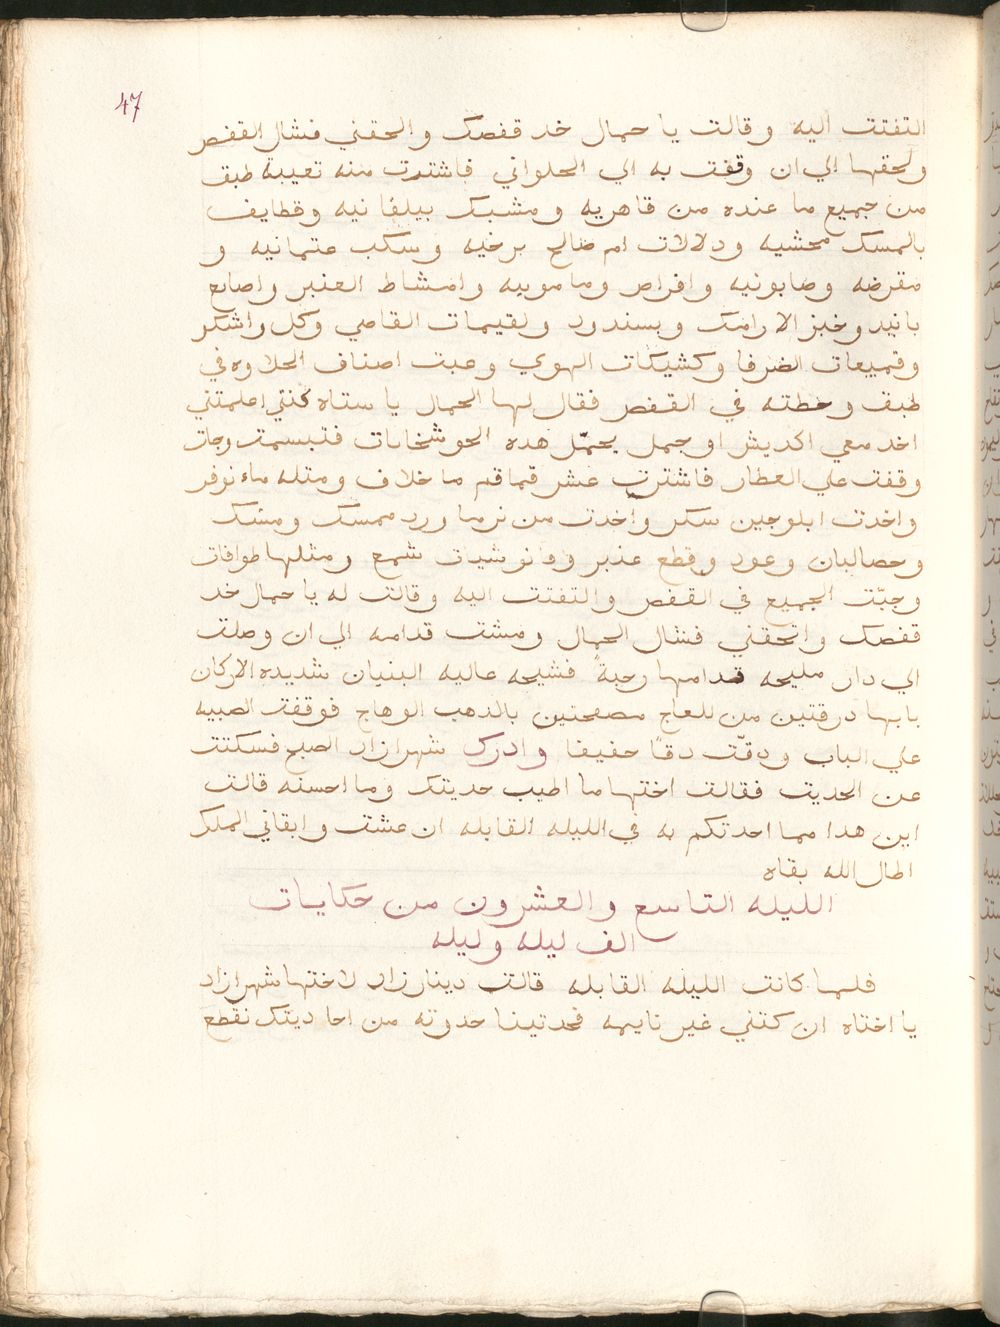 47
التفتت اليه وقالت يا حمال خد قفصك والحقني فشال القفص
ولحقها الي ان وقفت به الي الحلواني فاشترت منه تعيبة طبق
من جميع ما عنده من قاهريه ومشبك بيلقانيه وقطايف
بالمسك محشيه ودلالات ام صالح برخيه وسكب عتمانيه و
مقرضه وصابونيه واقراص ومامونيه وامشاط العنبر واصابع
بانيد وخبز الارامك وبسندود ولقيمات القاضي وكل واشكر
وقميعات الضرفا وكشيكات الهوي وعبت اصناف الحلاوه في
طبق وحطته في القفص فقال لها الحمال يا ستاه كنتي اعلمتني
اخد معي اكديش او جمل يحمّل هده الحوشخانات فتبسمت وجات
وقفت علي العطار فاشترت عشر قماقم ما خلاف ومتله ماء نوفر
واخدت ابلوجين سكر واخدت من نرما ورد ممسك ومسك
وحصالبان وعود وقطع عنبر وفانوشيات شمع ومثلها طوافات
وجبّت الجميع في القفص والتفتت اليه وقالت له يا حمال خد
قفصك والحقني فشال الحمال ومشت قدامه الي ان وصلت
الي دار مليحه قدامها رحبةً فشيحه عاليه البنيان شديده الاركان
بابها درقتين من للعاج مصفحتين بالدهب الوهاج فوقفت الصبيه
علي الباب ودقّت دقًا خفيفا وادرك شهرازاد الصبح فسكتت
عن الحديت فقالت اختها ما اطيب حديتك وما احسنه قالت
اين هدا مما احدتكم به في الليله القابله ان عشت وابقاني الملك
اطال الله بقاه
الليله التاسع والعشرون من حكايات
الف ليله وليله
فلما كانت الليله القابله قالت دينارزاد لاختها شهرازاد
يا اختاه ان كنتي غير نايمه فحدتينا حدوته من احاديتك نقطع